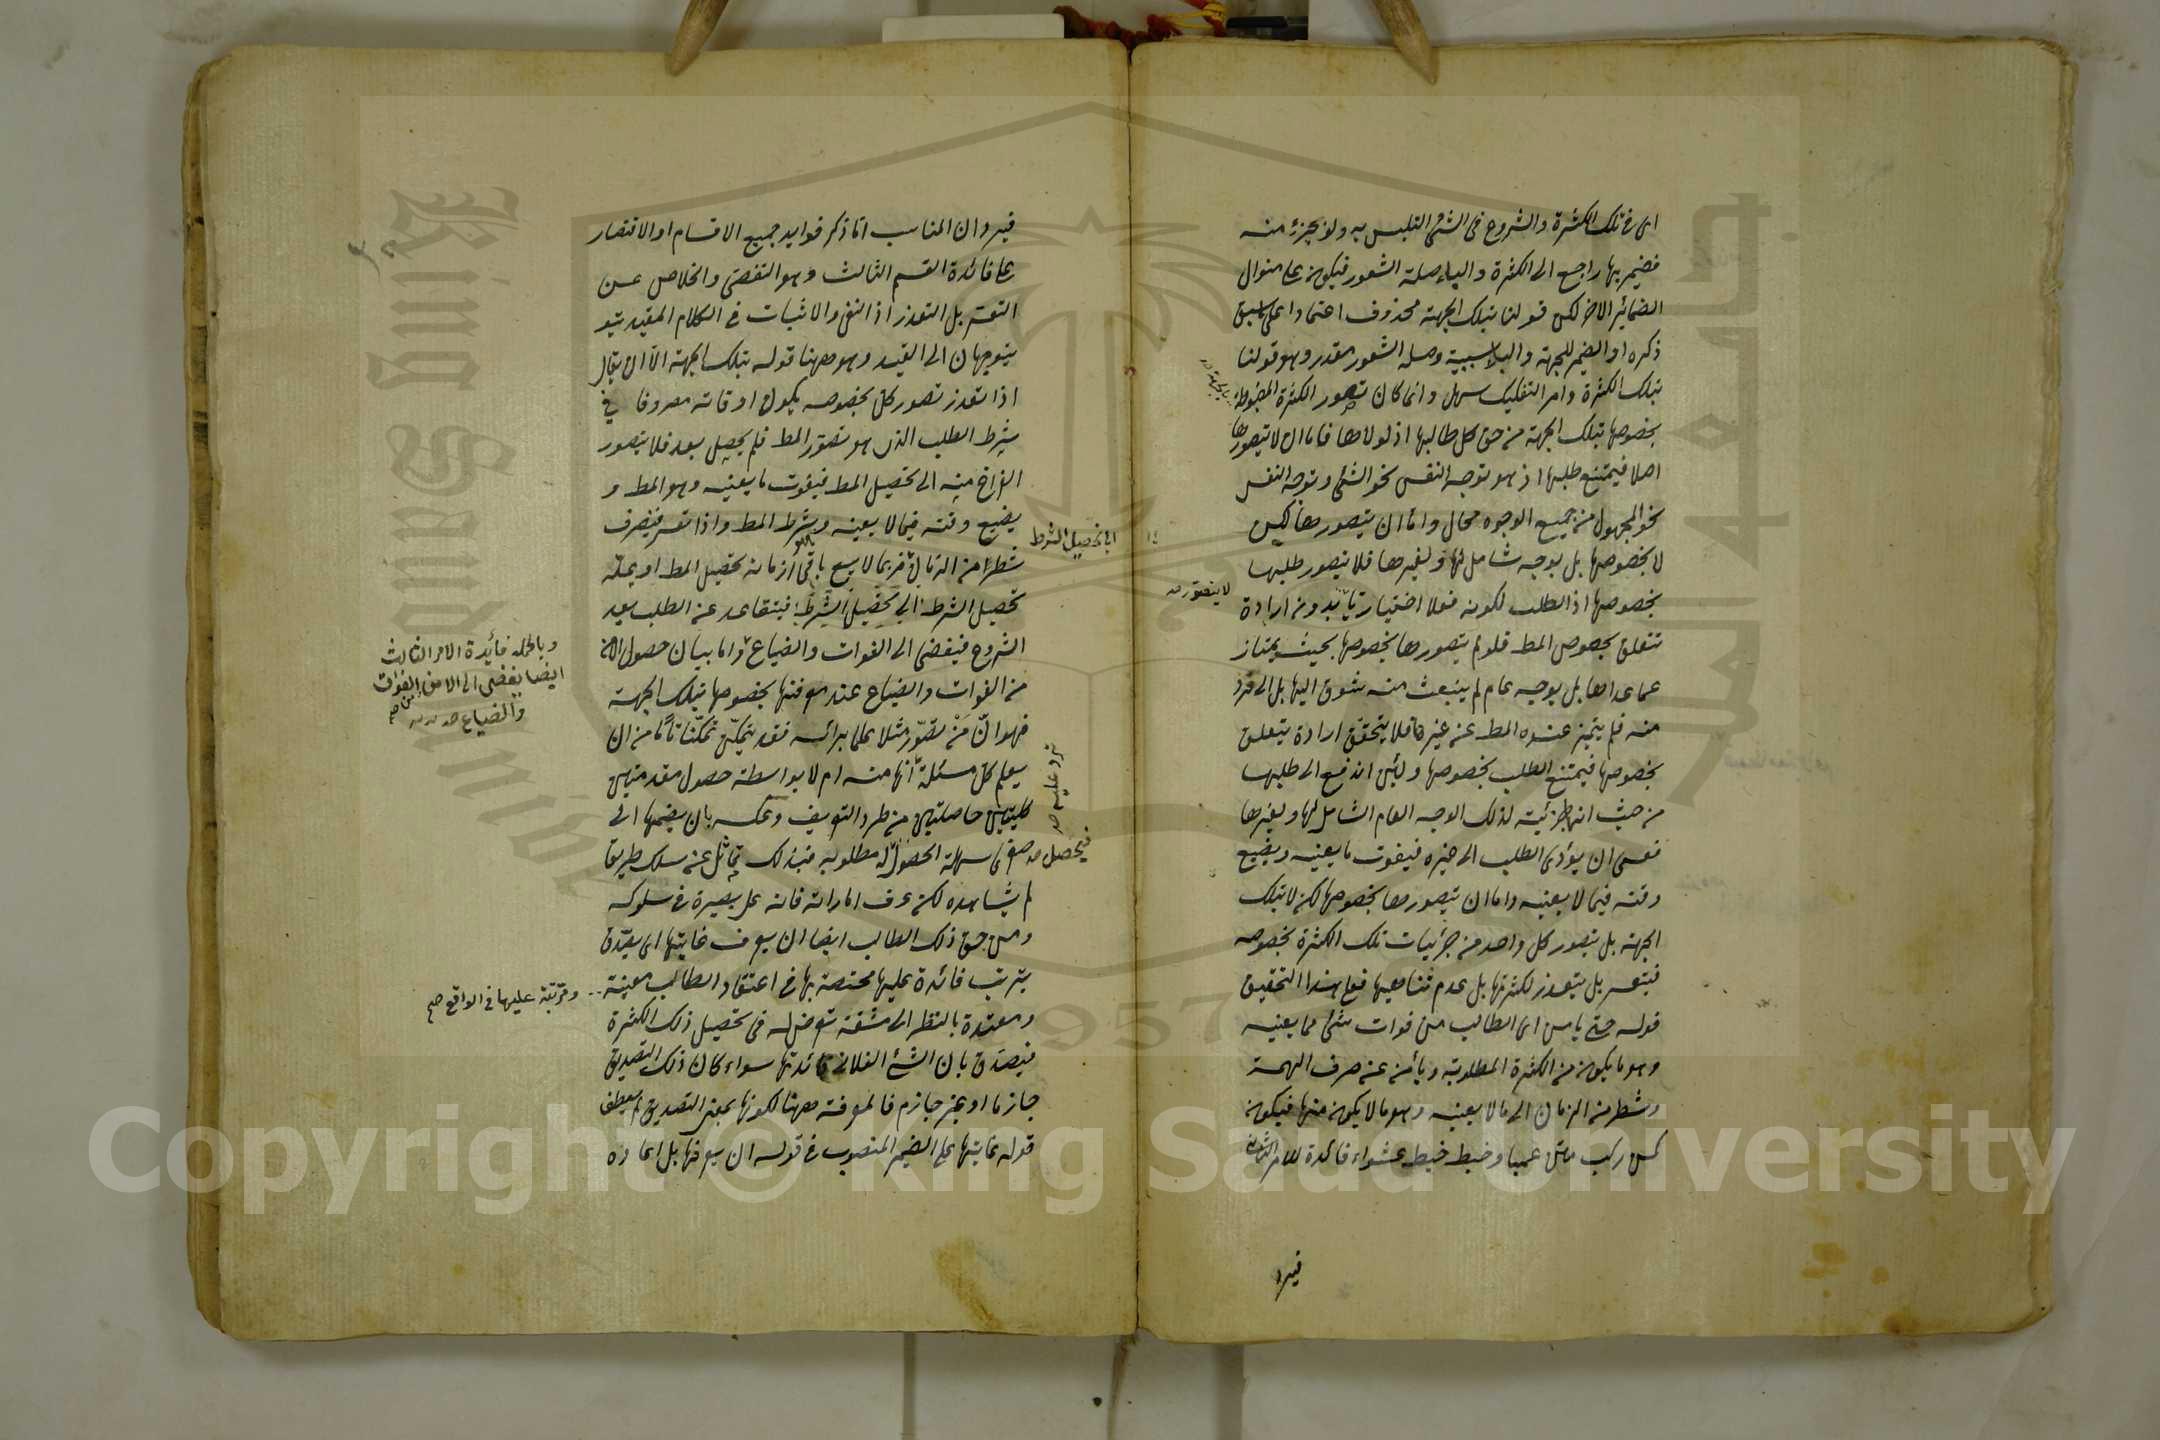 اى فى تلك الكثرة والشروع فى الشئ التلبس به ولو بجزء منه
فضمير بها راجع الى الكثرة والباء صلة الشعور فيكون على منوال
الضمائر الاخر لكن قولنا بتلك الجهة محذوف اعتمادا على ما سبق
ذكره او الضمير للجهة والباء للسببية وصلة الشعور مقدر وهو قولنا
بتلك الكثرة وامر التفكيك سهل وانما كان تصور الكثرة المضبوطة
بالجهة
بخصوصها بتلك الجهة من حق كل طالبها اذ لولاها فاما ان لا يتصورها
اصلا فيمتنع طلبها اذ هو توجه النفس نحو الشئ وتوجه النفس
نحو المجهول من جميع الوجوه محال واما ان يتصورها لكن
لا بخصوصها بل بوجه شامل لها ولغيرها فلا يتصور طلبها
لا يتصور صح
بخصوصها اذ الطلب لكونه فعلا اختياريا بدون ارادة
تتعلق بخصوص المط فلو لم يتصورها بخصوصها بحيث يمتاز
عما عداها بل بوجه عام لم ينبعث منه شوق اليها بل الى فرد
منه فلم يتميز عنده المط عن غيرها فلا يتحقق ارادة يتعلق
بخصوصها فيمتنع الطلب بخصوصها ولئن اندفع الى طلبها
من حيث انها جزئية لذلك الوجه العام الشامل لها ولغيرها
فعسى ان يؤدى الطلب الى غيره فيفوت ما يعنيه ويضيع
وقته فيما لا يعنيه واما ان يتصورها بخصوصها لكن لا بتلك
الجهة بل يتصور كل واحد من جزئيات تلك الكثرة بخصوصه
فيتعسر بل يتعذر لكثرتها بل عدم تناهيها فعلى هذا التحقيق
قوله حتى يأمن اى الطالب من فوات شئ مما يعنيه
وهو ما يكون من الكثرة المطلوبة ويأمن عن صرف الهمة
وشطر من الزمان الى ما لا يعنيه وهو ما لا يكون منها فيكون
كمن ركب متن عمياء وخبط خبط عشواء فائدة للامر الثالث
فيرد
فيرد ان المناسب اما ذكر فوايد جميع الاقسام او الاقتصار
على فائدة القسم الثالث وهو التفصى والخلاص عن
التعسر بل التعذر اذ النفى والاثبات فى الكلام المقيد بقيد
يتوجهان الى القيد وهو ههنا قوله بتلك الجهة الا ان يقال
اذا تعذر تصور كل بخصوصه يكون اوقاته مصروفا فى
شرط الطلب الذى هو تصور المط فلم يحصل بعد فلا يتصور
الفراغ منه الى تحصيل المط فيفوت ما يعنيه وهو المط و
يضيع وقته فيما لا يعنيه وشرط المط واذا تعسر فيصرف
اى تحصيل الشرط
شطرا من الزمان فربما لا يسع باقى ازمانه تحصيل المط او يمله
تحصيل الشرط اى تحصيل الشرط فيتقاعد عن الطلب بعد
الشروع فيفضى الى الفوات والضياع واما بيان حصول الامن
وبالجملة فائدة الامر الثالث
ايضا يفضى الى الامن عن الفوات
والضياع صح
من الفوات والضياع عند معرفتها بخصوصها بتلك الجهة
فهو ان من تصور مثلا علما برأسه فقد يتمكن تمكنا تاما من ان
يعلم كل مسئلة انها منه ام لا بواسطة حصول مقدمتين
ترد عليه صح
كليتين حاصلتين من طرد التعريف وعكسه بان يضمها الى
صغرى سهلة الحصول مطلوبه فبذلك
فيحصل صح
لم يشاهده لكن عرف اماراته فانه على بصيرة فى سلوكه
ومن حق ذلك الطالب ايضا ان يعرف غايتها اى يصدق
بترتب فائدة عليها مختصة بها فى اعتقاد الطالب معينة
ومترتبة عليها فى الواقع صح
ومعتدة بالنظر الى مشقة تعرض له فى تحصيل ذلك الكثرة
فيصدق بان الشئ الفلانى فائدتها سواء كان ذلك التصديق
جازما او غير جازم فالمعرفة ههنا لكونها بمعنى التصديق لم يعطف
قوله غايتها على الضمير المنصوب فى قوله ان يعرفها بل اعاده